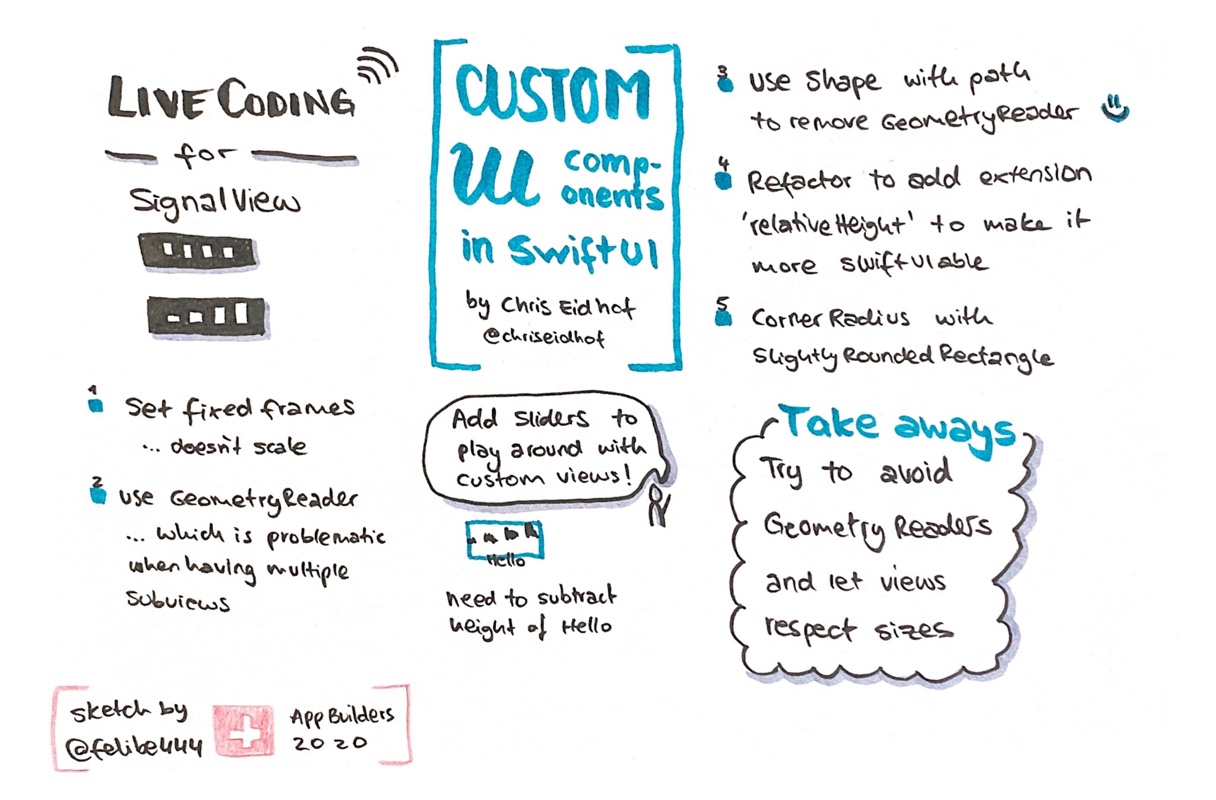 LIVE CODING
for
SignalView
1 Set fixed frames
... doesn't scale
2 use GeometryReader
... which is problematic
when having multiple
subviews
CUSTOM
UI comp-
onents
in SwiftUI
by Chris Eidhof
@chriseidhof
Add Sliders to
play around with
custom views!
Hello
need to subtract
height of Hello
3 Use Shape with path
to remove GeometryReader
4 Refactor to add extension
'relativeHeight' to make it
more SwiftUIable
5 CornerRadius with
SlightlyRoundedRectangle
Take aways
Try to avoid
GeometryReaders
and let views
respect sizes
sketch by
@felibe444
AppBuilders
2020